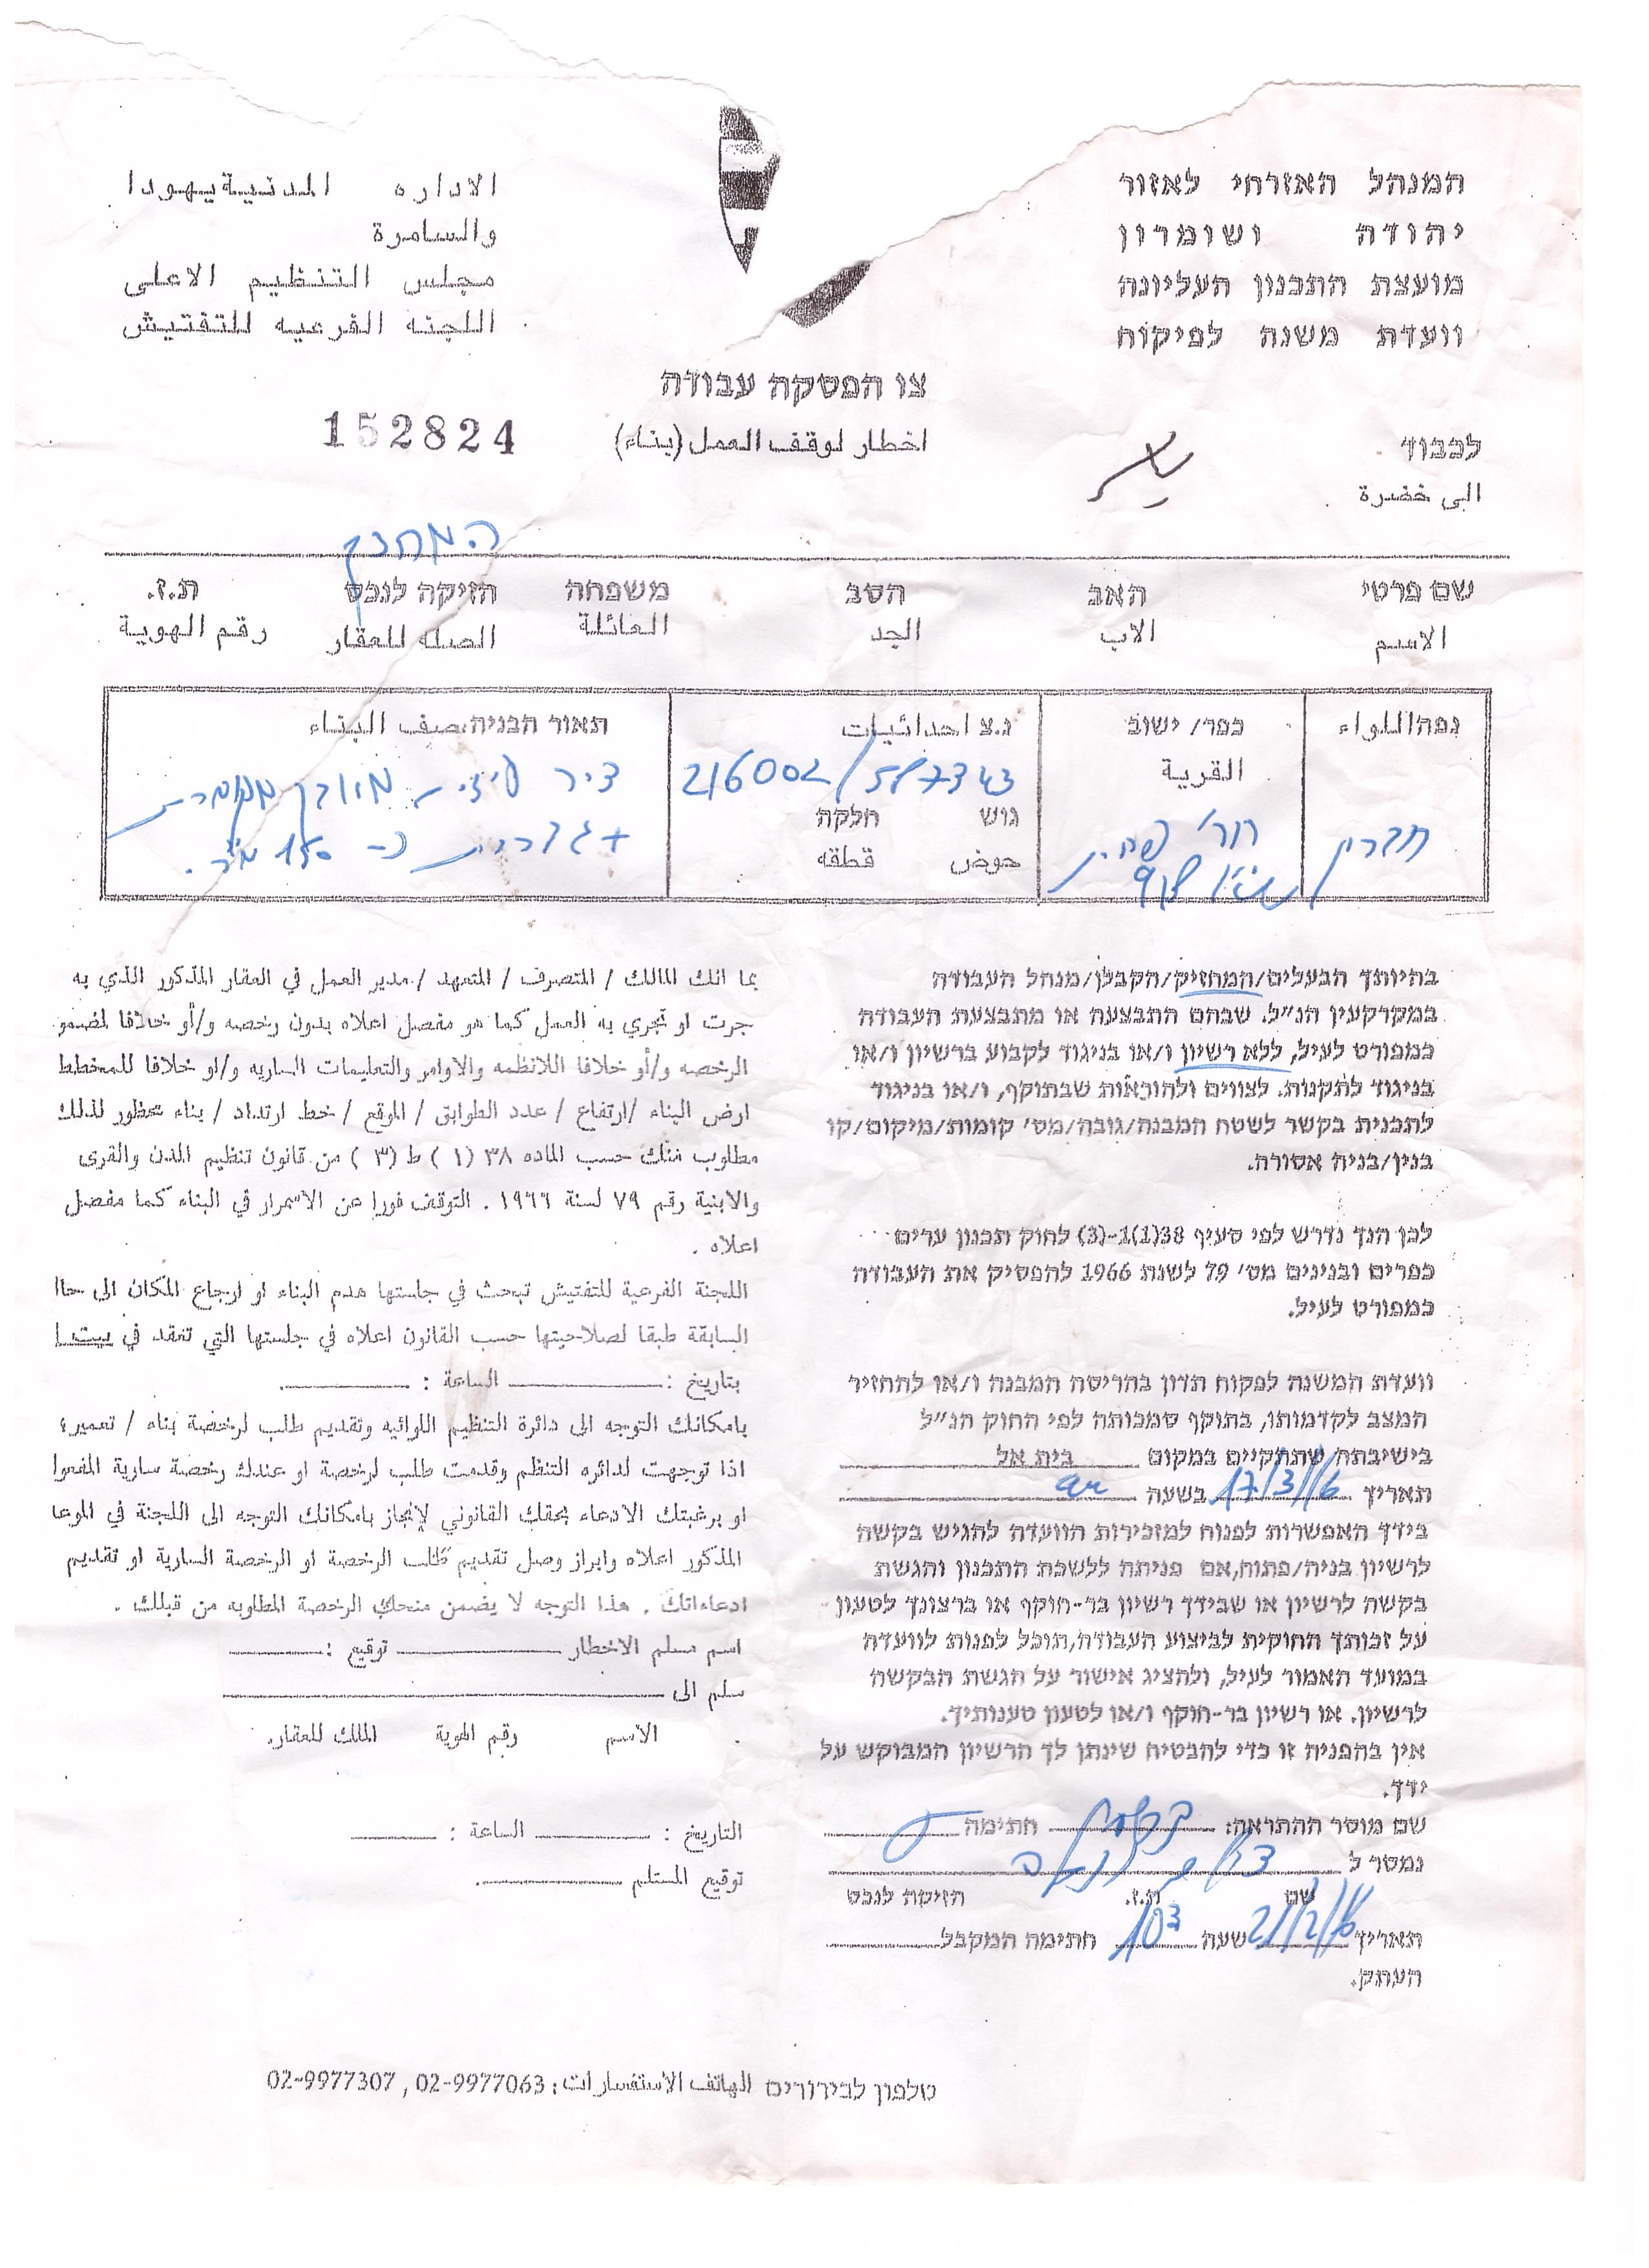 המנהל האזרחי לאזור
יהודה ושומרון
מועצת התכנון העליונה
וועדת משנה לפיקוח
الاداره المدنية يهودا
والسامرة
مجلس التنظيم الاعلى
اللجنه الفرعيه للتفتيش
צו הפסקה עבודה
اخطار لوقف العمل (بناء)
152824
לכבוד
الى حضرة
המחזיק
שם פרטי האב הסב משפחה חזיקה לנכס ת.ז.
الاسم الاب الجد العائلة الصله للعقار رقم الهوية
נפה اللواء
חברון
כפר/ ישוב
القرية
נ.צ احداثيات
216002/587343
גוש חלקה
حوض قطقه
תאור הבניה وصف البناء
דיר
+ גדרות כ- 150 מ"ר.
בהיותך הבעלים/המחזיק/הקבלן/מנהל העבודה
במקרקעין הנ"ל. שבהם התבצעה או מתבצעת העבודה
כמפורט לעיל, ללא רשיון ו/או בניגוד לקבוע ברשיון ו/או
בניגוד לתקנות. לצווים ולהוראות שבתוקף, ו/או בניגוד
לתכנית בקשר לשטח המבנה/גובה/מס' קומות/מיקום/קו
בנין/בניה אסורה.
לכן הנך נדרש לפי סעיף 38(1)1-(3) לחוק תכנון ערים
כפרים ובנינים מס' 79 לשנת 1966 להפסיק את העבודה
כמפורט לעיל.
וועדת המשנה לפקוח תדון בהריסת המבנה ו/או להחזיר
המצב לקדמותו, בתוקף סמכותה לפי החוק הנ"ל
בישיבתה שתתקיים במקום בית אל
תאריך 17/3/16 בשעה
בידך האפשרות לפנות למזכירות הוועדה להגיש בקשה
לרשיון בניה/פתוח,אם פניתה ללשכת התכנון והגשת
בקשה לרשיון או שבידך רשיון בר-תוקף או ברצונך לטעון
על זכותך החוקית לביצוע העבודה,תוכל לפנות לוועדה
במועד האמור לעיל, ולהציג אישור על הגשת הבקשה
לרשיון. או רשיון בר-תוקף ו/או לטעון טענותיך.
אין בהפניה זו כדי להבטיח שינתן לך הרשיון המבוקש על
ידך.
שם מוסר ההתראה: חתימה
נמסר ל
שם ת.ז. חזיקה לנכס
תאריך 21/2/16 שעה 10 חתימה המקבל
העתק.
بما انك المالك / المتصرف / المتعهد / مدير العمل في العقار المذكور الذي به
جرت او تجري به العمل كما هو مفصل اعلاه بدون رخصه و/أو خلافا لمضمو
الرخصه و/أو خلافا اللانظمه والاوامر والتعليمات الساريه و/او خلافا للمخطط
ارض البناء /ارتفاع / عدد الطوابق / الموقع / خط ارتداد / بناء محظور لذلك
مطلوب منك حسب الماده ٣٨ (١ ) ط (٣ ) من قانون تنظيم المدن والقرى
والابنية رقم ٧٩ لسنة ١٩٦٦ . التوقف فورا عن الاستمرار في البناء كما مفصل
اعلاه .
اللجنة الفرعية للتفتيش تبحث في جلستها هدم البناء او ارجاع المكان الى حاا
السابقة طبقا لصلاحيتها حسب القانون اعلاه في جلستها التي تعقد في بيت ا
بتاريخ : الساعة :
بامكانك التوجه الى دائرة التنظيم اللوائيه وتقديم طلب لرخصة بناء / تعمير؛
اذا توجهت لدائره التنظم وقدمت طلب لرخصة او عندك رخصة سارية المفعوا
او برغبتك الادعاء بحقك القانوني لإنجاز بامكانك التوجه الى اللجنة في الموعا
المذكور اعلاه وابراز وصل تقديم طلب الرخصة او الرخصة السارية او تقديم
ادعاءاتك . هذا التوجه لا يضمن منحك الرخصة المطلوبه من قبلك .
اسم مسلم الاخطار توقيع :
سلم الى
الاسم رقم الهوية المالك للعقار.
التاريخ : الساعة :
توقيع المستلم
טלפון לבירורים الهاتف الاستفسارات: 02-9977063 , 02-9977307